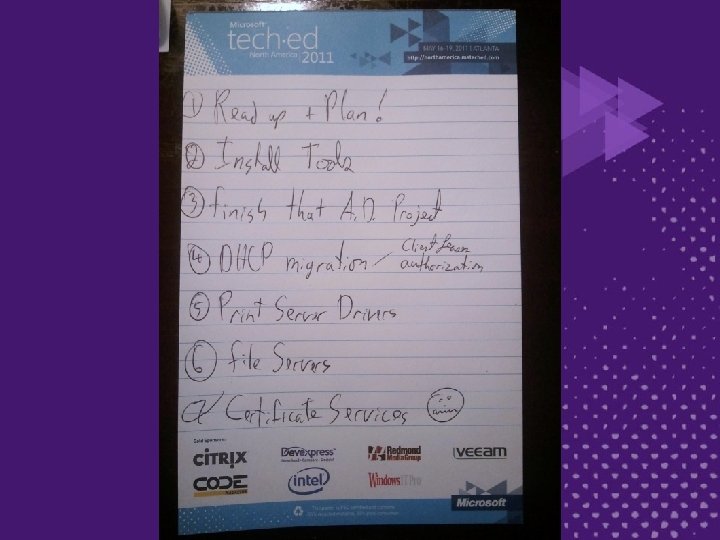 Microsoft
tech·ed
North America 2011
MAY 16-19, 2011 | ATLANTA
http://northamerica.msteched.com
① Read up + Plan!
② Install Tools
③ finish that A.D. Project
④ DHCP migration - Client
authorization
⑤ Print Server Drivers
⑥ file Servers
⑦ Certificate Services
Gold sponsors:
CITRIX
DevExpress
Redmond
Media Group
veeam
CODE
intel
Windows IT Pro
Microsoft